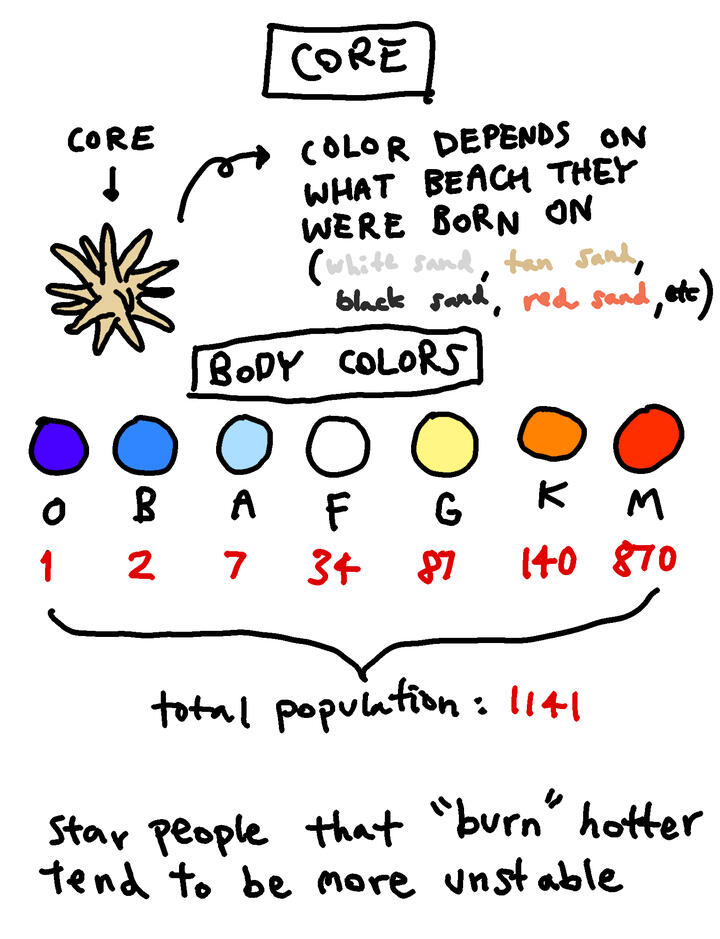 CORE
CORE
COLOR DEPENDS ON
WHAT BEACH THEY
WERE BORN ON
(white sand, tan sand,
black sand, red sand, etc)
BODY COLORS
O B A F G K M
1 2 7 34 87 140 870
total population: 1141
star people that "burn" hotter
tend to be more unstable